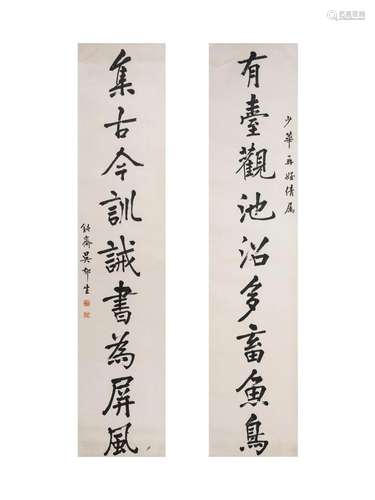 少華姪倩屬
有臺觀池沼多畜魚鳥
集古今訓誡書為屏風
鈍齋吳郁生